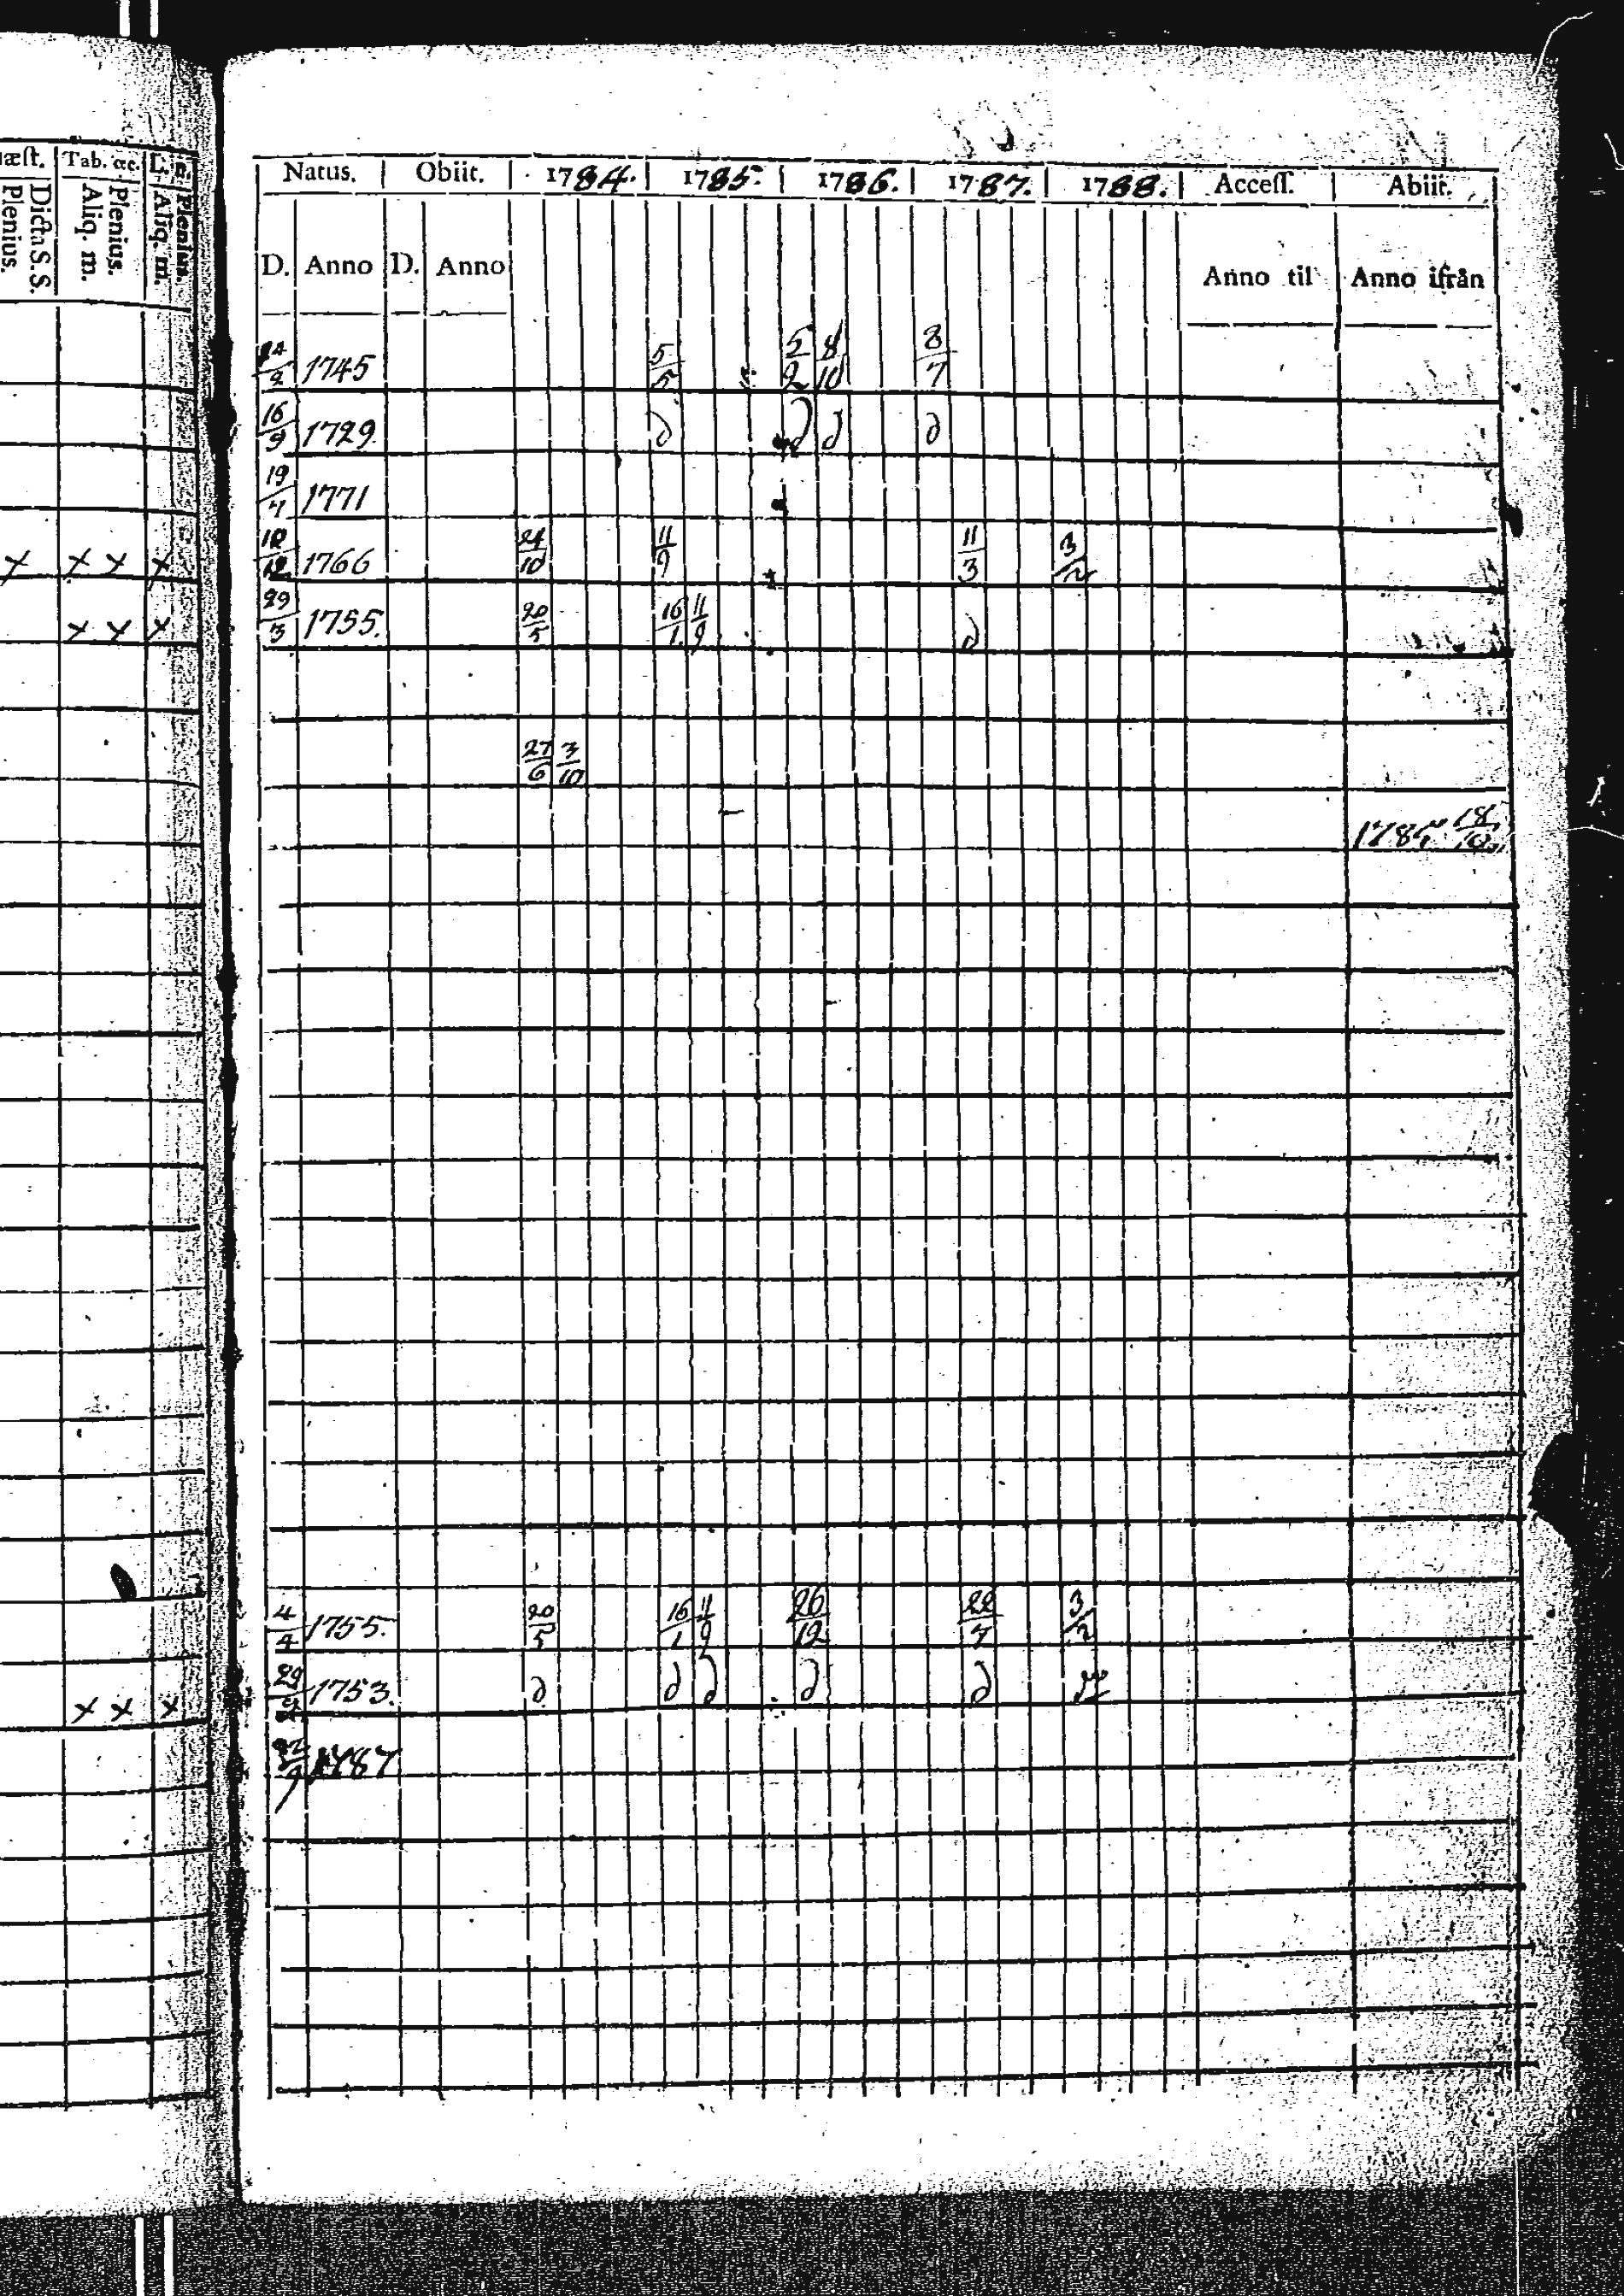 æſt. Tab. œc.
Dicta S. S.
Plenius.
Plenius.
Aliq. m.
Plenius.
Aliq. m.
Natus. Obiit. 1784. 1785. 1786. 1787. 1788. Acceſſ. Abiit.
D. Anno D. Anno Anno til Anno ifrån
24/2 1745 5/5 5/2 8/10 8/7
16/9 1729 d d d d
19/7 1771
x x x x 1766 24/10 11/9 11/3 3/2
x x x 29/3 1755. 20/5 16/1 11/9 d
27/6 3/10
18/10
4/4 1755. 20/5 16/1 11/9 26/12 22/7 3/2
x x x 1753. d d d d d
1787